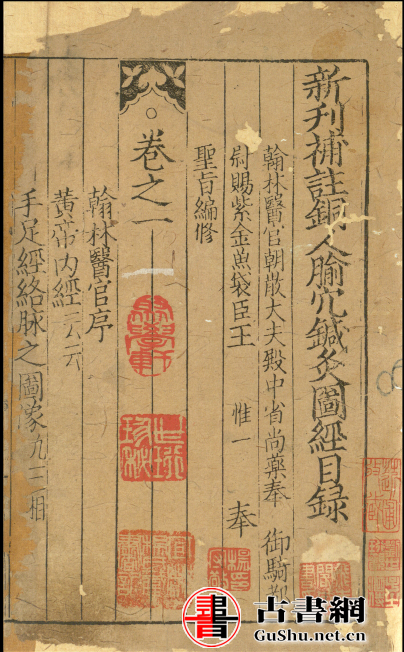 新刋補註銅人腧穴鍼灸圖經目録
翰林醫官朝散大夫殿中省尚藥奉　御騎都
尉賜紫金魚袋臣王　惟一　奉
聖旨編修
卷之一
翰林醫官序
黃帝內經二云
手足經絡脉之圖象九三相
古書網
GuShu.net.cn
書